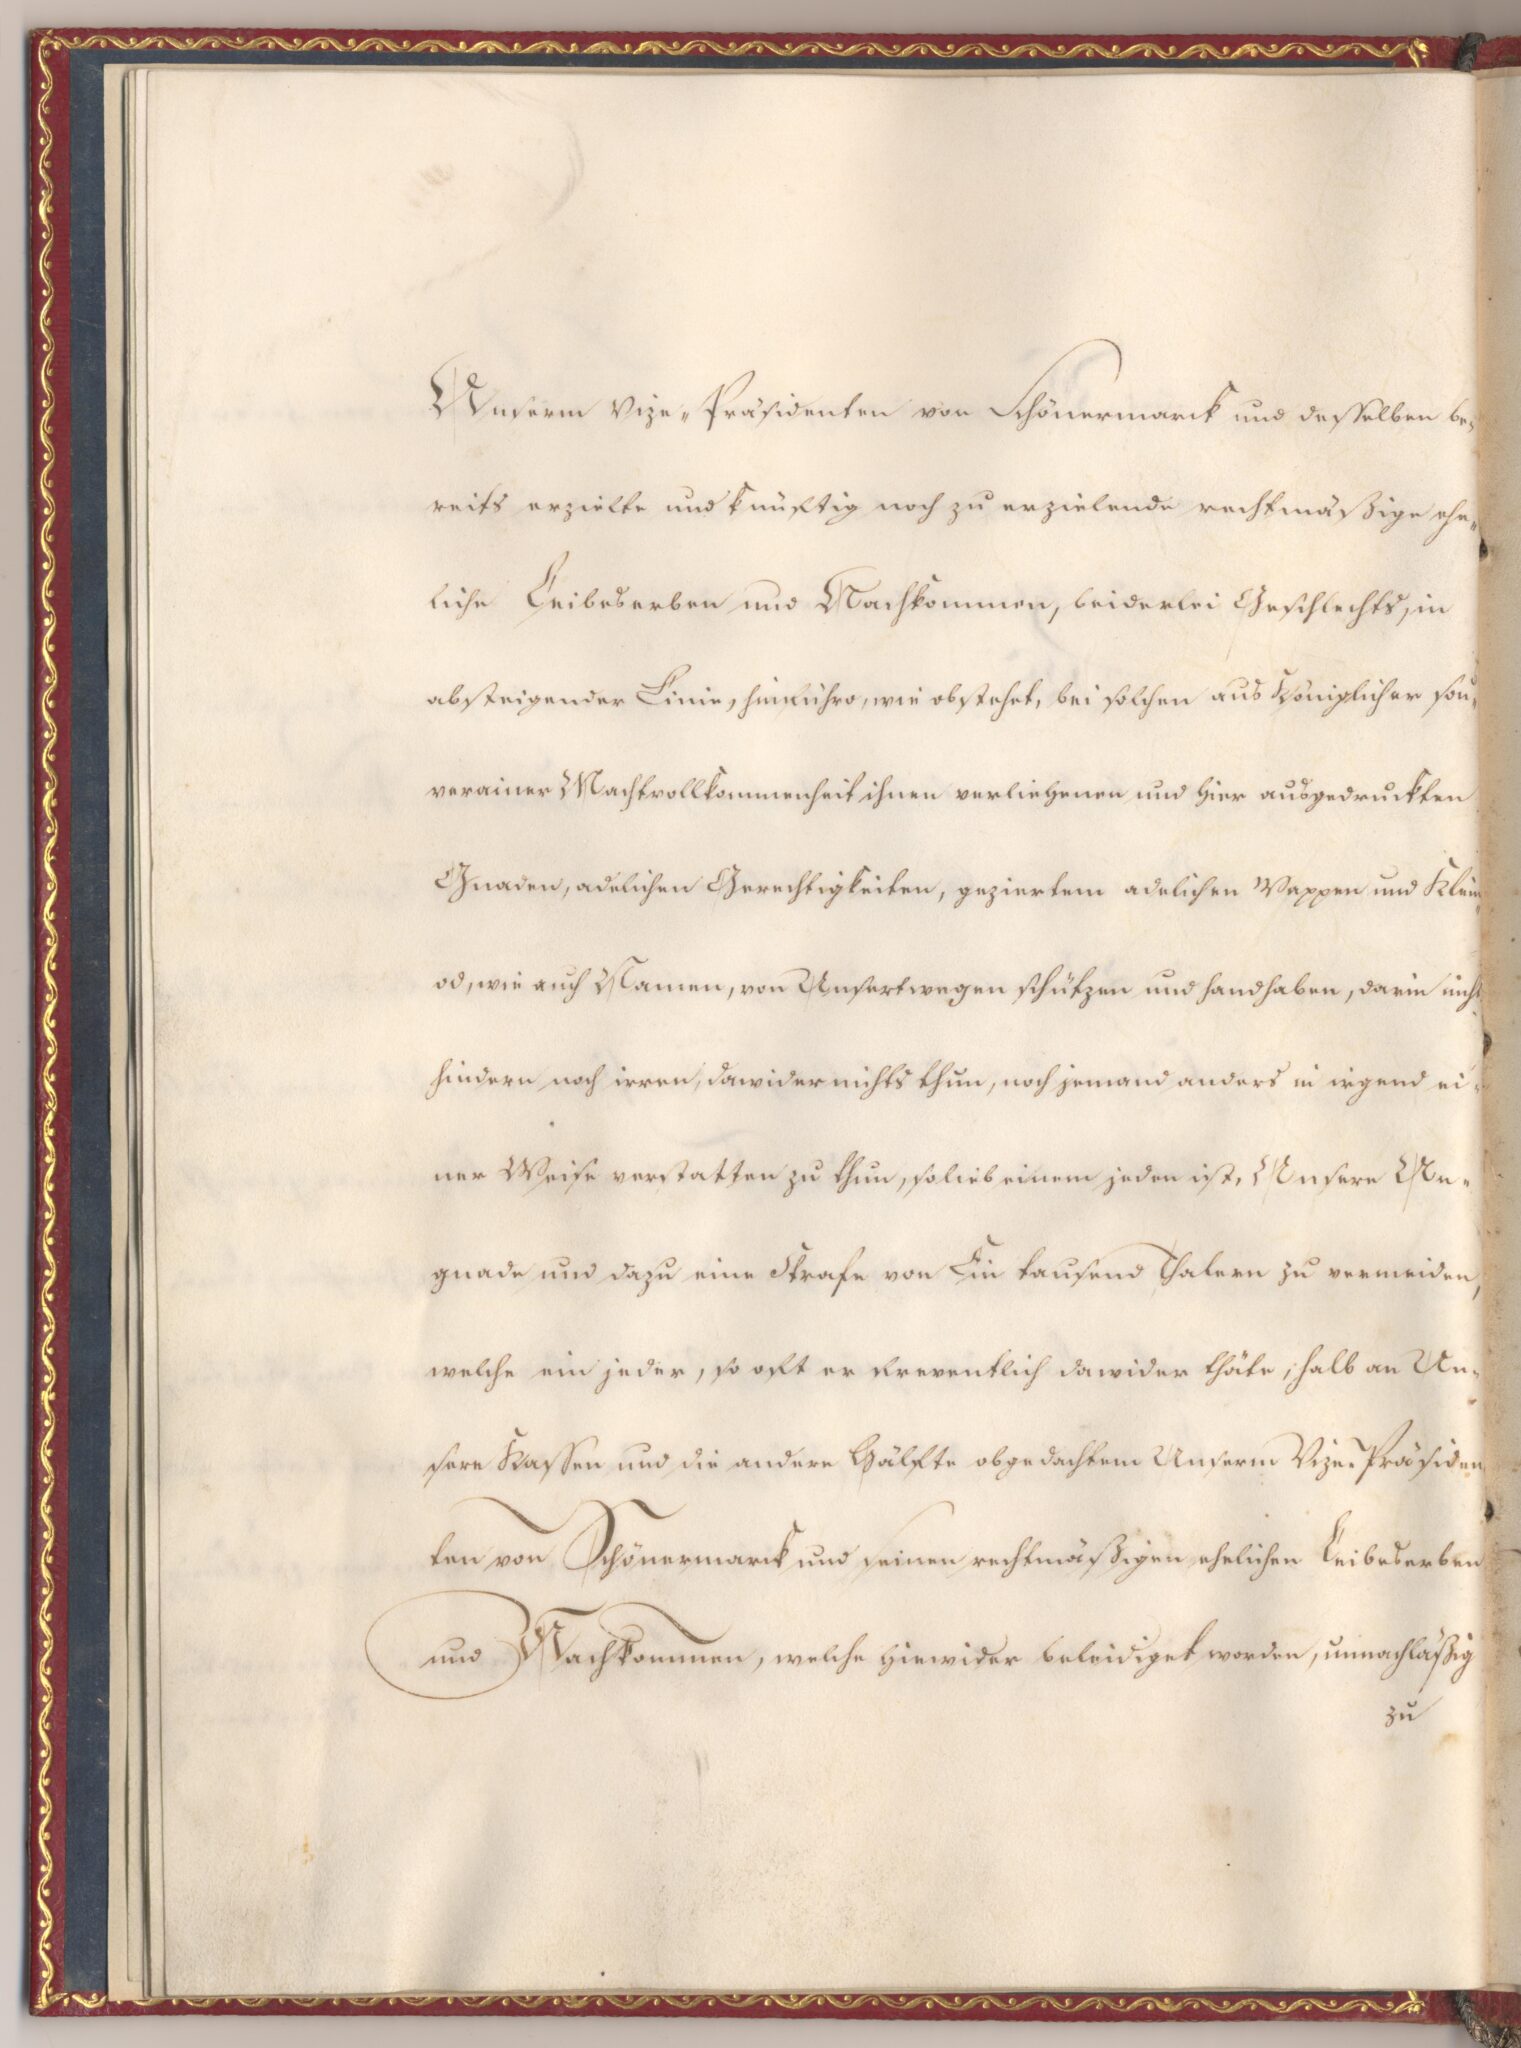 Unserm Vize-Präsidenten von Schönermarck und desselben be-
reits erzielte und künftig noch zu erzielende rechtmäßige ehe-
liche Leibeserben und Nachkommen, beiderlei Geschlechts, in
absteigender Linie, hinführo, wie obstehet, bei solchen aus Königlicher sou-
verainer Machtvollkommenheit ihnen verliehenen und hier ausgedruckten
Gnaden, adelichen Gerechtigkeiten, geziertem adelichen Wappen und Klein-
od, wie auch Namen, von Unsertwegen schützen und handhaben, darin nicht
hindern noch irren, dawider nichts thun, noch jemand anders in irgend ei-
ner Weise verstatten zu thun, so lieb einem jeden ist, Unsere Un-
gnade und dazu eine Strafe von Ein tausend Thalern zu vermeiden,
welche ein jeder, so oft er freventlich dawider thäte, halb an Un-
sere Kassen und die andere Hälfte obgedachtem Unserm Vize-Präsiden
ten von Schönermarck und seinen rechtmäßigen ehelichen Leibeserben
und Nachkommen, welche hiewider beleidiget worden, unnachläßig
zu